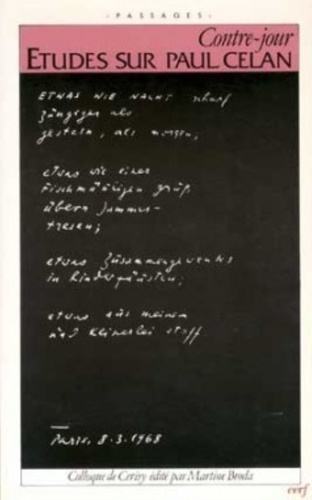 ·PASSAGES·
Contre-jour
ETUDES SUR PAUL CELAN
ETWAS WIE NACHT scharf
züngiger als
gestern, als morgen;
etwas wie einer
Fischmäuligen Gruß
übern Jammer-
tresen;
etwas Zusammengewehtes
in Kinderfäusten;
etwas aus meinem
und keinerlei Stoff
Paris, 8.3.1968
Colloque de Cerisy édité par Martine Broda
cerf